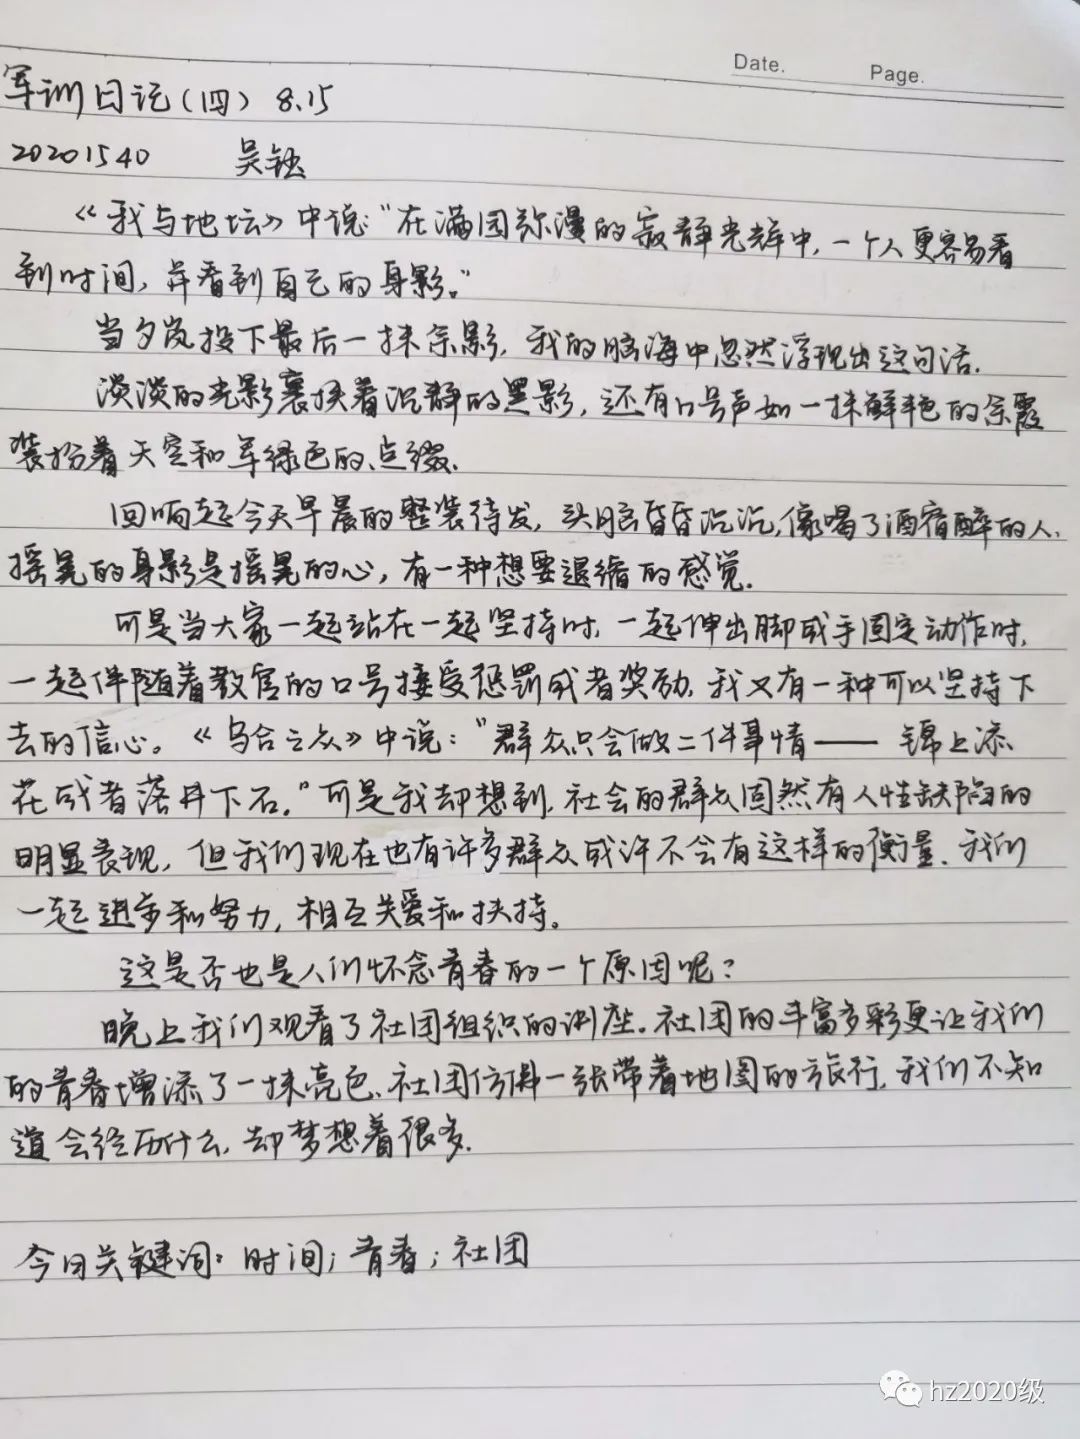 Date.
Page.
军训日记(四) 8.15
20201540 吴钰
《我与地坛》中说:“在满园弥漫的寂静光辉中,一个人更容易看
到时间,并看到自己的身影。”
当夕岚投下最后一抹余影,我的脑海中忽然浮现出这句话.
淡淡的光影裹挟着沉静的黑影,还有口号声如一抹鲜艳的余霞
装扮着天空和军绿色的点缀.
回响起今天早晨的整装待发,头脑昏昏沉沉,像喝了酒宿醉的人.
摇晃的身影是摇晃的心,有一种想要退缩的感觉.
可是当大家一起站在一起坚持时,一起伸出脚或手固定动作时,
一起伴随着教官的口号接受惩罚或者奖励,我又有一种可以坚持下
去的信心。《乌合之众》中说:“群众只会做二件事情——锦上添
花或者落井下石。”可是我却想到,社会的群众固然有人性缺陷的
明显表现,但我们现在也有许多群众或许不会有这样的衡量.我们
一起进步和努力,相互关爱和扶持。
这是否也是人们怀念青春的一个原因呢?
晚上我们观看了社团组织的讲座.社团的丰富多彩更让我们
的青春增添了一抹亮色.社团仿佛一张带着地图的旅行,我们不知
道会经历什么,却梦想着很多.
今日关键词:时间;青春;社团
hz2020级